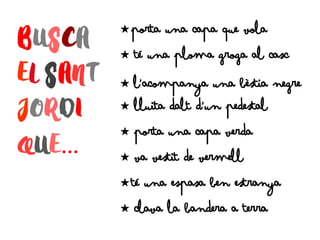 BUSCA
EL SANT
JORDI
QUE...
★porta una capa que vola
★ té una ploma groga al casc
★ l'acompanya una bèstia negre
★ lluita dalt d'un pedestal
★ porta una capa verda
★ va vestit de vermell
★té una espasa ben estranya
★ clava la bandera a terra